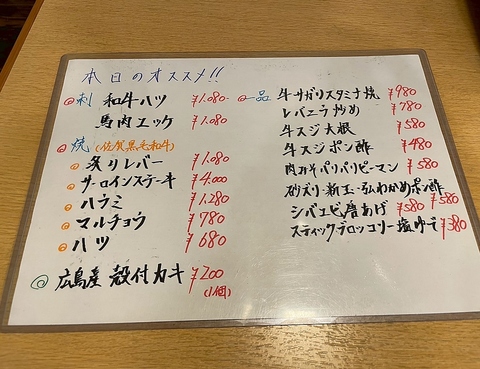 本日のオススメ!!
刺 和牛ハツ ¥1.080
馬肉ユッケ ¥1.080
焼 (佐賀黒毛和牛)
炙りレバー ¥1.080
サーロインステーキ ¥4.000
ハラミ ¥1.280
マルチョウ ¥780
ハツ ¥680
広島産 殻付カキ ¥200
(1個)
一品 牛サガリスタミナ焼 ¥980
レバニラ炒め ¥780
牛スジ大根 ¥580
牛スジポン酢 ¥480
肉みそパリパリピーマン ¥580
砂ズリ・新玉・わかめポン酢 ¥580
シバエビ唐あげ ¥580
スティックブロッコリー塩ゆで ¥380